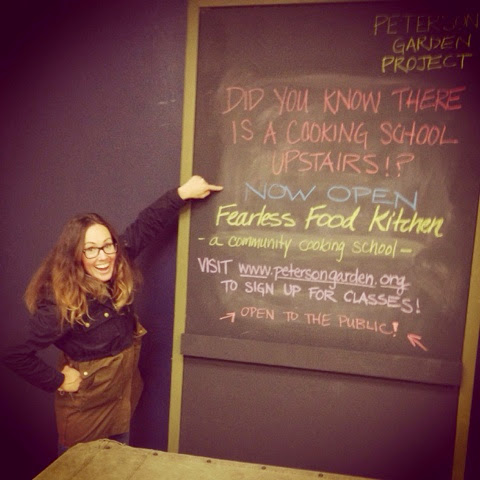 PETERSON
GARDEN
PROJECT
DID YOU KNOW THERE
IS A COOKING SCHOOL
UPSTAIRS!?
NOW OPEN
Fearless Food Kitchen
- a community cooking school -
VISIT www.petersongarden.org
TO SIGN UP FOR CLASSES!
→ OPEN TO THE PUBLIC! ←